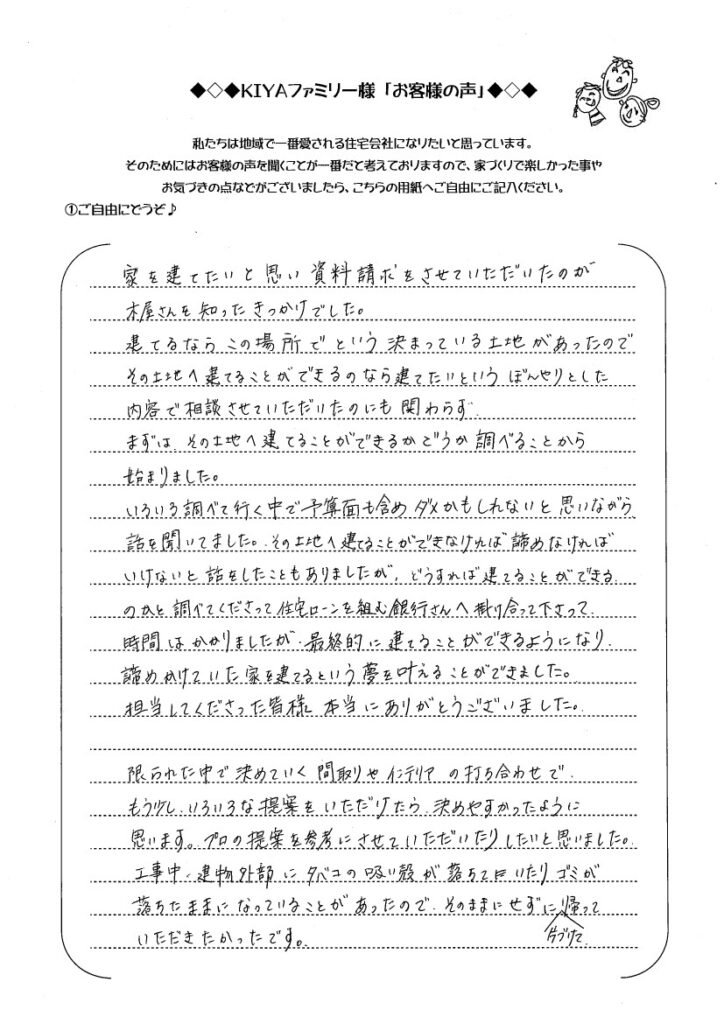 ◆◇◆KIYAファミリー様「お客様の声」◆◇◆
私たちは地域で一番愛される住宅会社になりたいと思っています。
そのためにはお客様の声を聞くことが一番だと考えておりますので、家づくりで楽しかった事や
お気づきの点などがございましたら、こちらの用紙へご自由にご記入ください。
①ご自由にどうぞ♪
家を建てたいと思い資料請求をさせていただいたのが
木屋さんを知ったきっかけでした。
建てるならこの場所でという決まっている土地があったので
その土地へ建てることができるのなら建てたいというぼんやりとした
内容で相談させていただいたのにも関わらず、
まずは、その土地へ建てることができるかどうか調べることから
始まりました。
いろいろ調べて行く中で予算面も含めダメかもしれないと思いながら
話を聞いてました。その土地へ建てることができなければ諦めなければ
いけないと話をしたこともありましたが、どうすれば建てることができる
のかと調べてくださって住宅ローンを組む銀行さんへ掛け合って下さって、
時間はかかりましたが、最終的に建てることができるようになり、
諦めかけていた家を建てるという夢を叶えることができました。
担当してくださった皆様、本当にありがとうございました。
限られた中で決めていく間取りやインテリアの打ち合わせで、
もう少し、いろいろな提案をいただけたら、決めやすかったように
思います。プロの提案を参考にさせていただいたりしたいと思いました。
工事中、建物外部にタバコの吸い殻が落ちていたりゴミが
落ちたままになっていることがあったので、そのままにせずに帰って
片づけて
いただきたかったです。